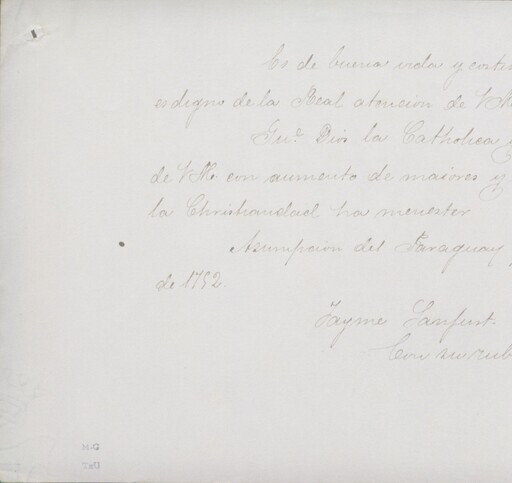 Es de buena vida y
es digno de la Real atencion de V.M.
Gu.e Dios la Catholica
de V.M. con aumento de maiores y
la Christiandad ha menester
Asumpcion del Paraguay
de 1752.
Jayme Sanjust.
Con su rub
M-G